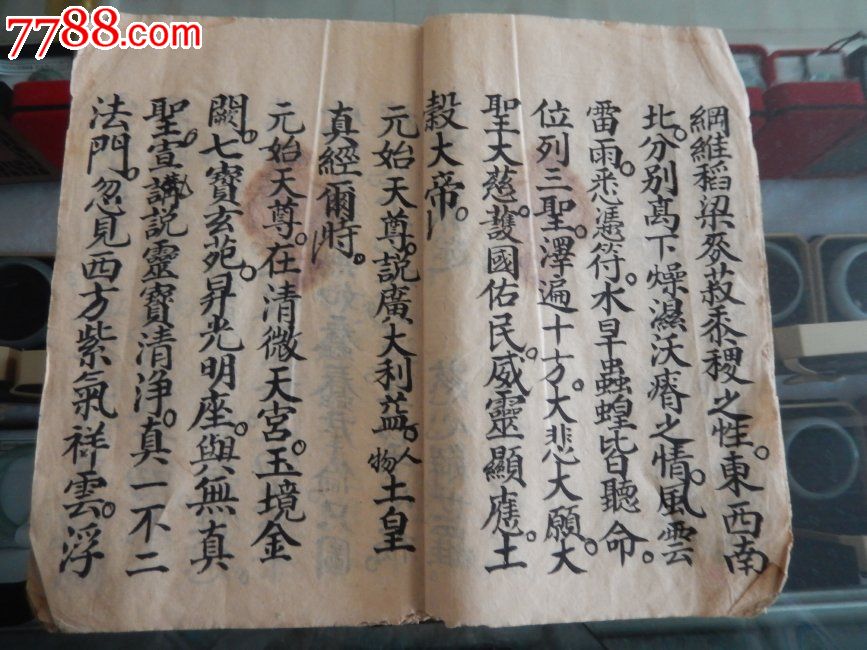 7788.com
綱維稻梁麥菽黍稷之性。東西南
北。分別高下燥濕沃瘠之情。風雲
雷雨。悉憑符。水旱蟲蝗皆聽命。
位列三聖。澤遍十方。大悲大願。大
聖大慈。護國佑民。威靈顯應。土
穀大帝。
元始天尊。說廣大利益。人物土皇
真經爾時。
元始天尊。在清微天宮。玉境金
闕。七寶玄苑。昇光明座。與無真
聖。宣講說靈寶清淨。真一不二
法門。忽見西方紫氣祥雲。浮